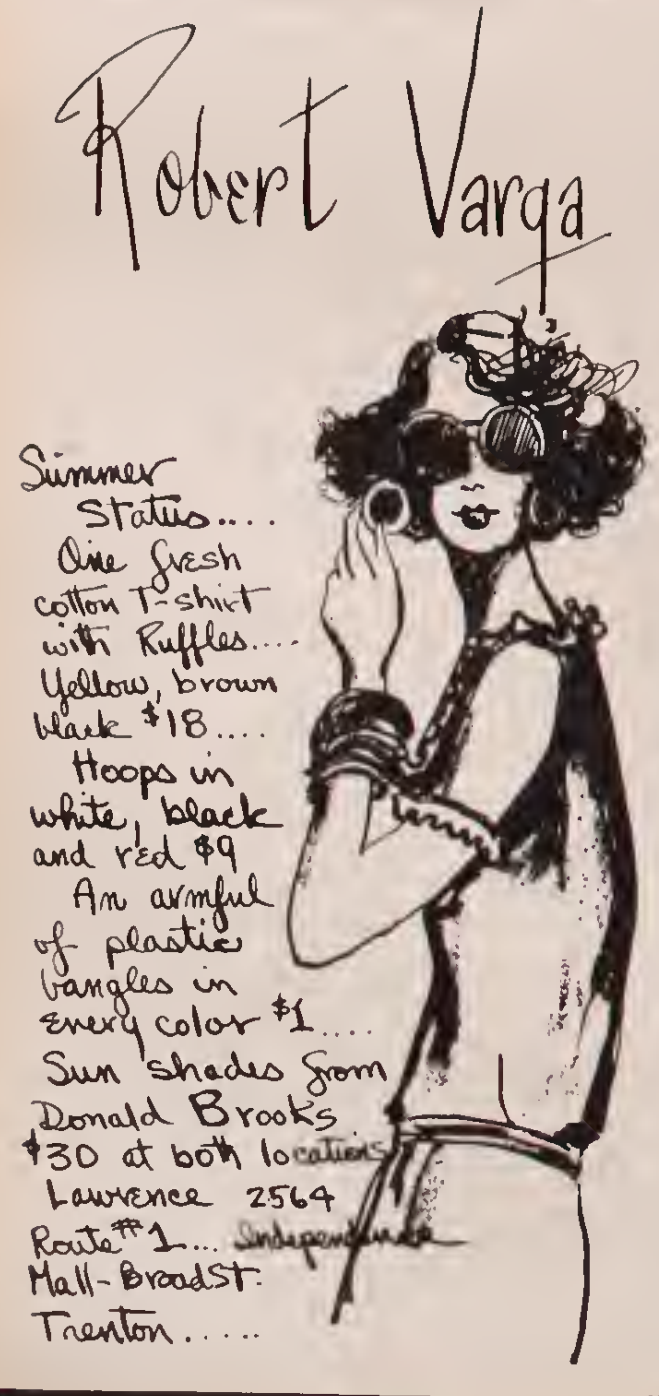 Robert Varga
Summer
Status....
One fresh
cotton T-shirt
with Ruffles....
Yellow, brown
black $18....
Hoops in
white, black
and red $9
An armful
of plastic
bangles in
every color $1....
Sun shades from
Donald Brooks
$30 at both locations
Lawrence 2564
Route #1... Independence
Mall-Broad St.
Trenton.....